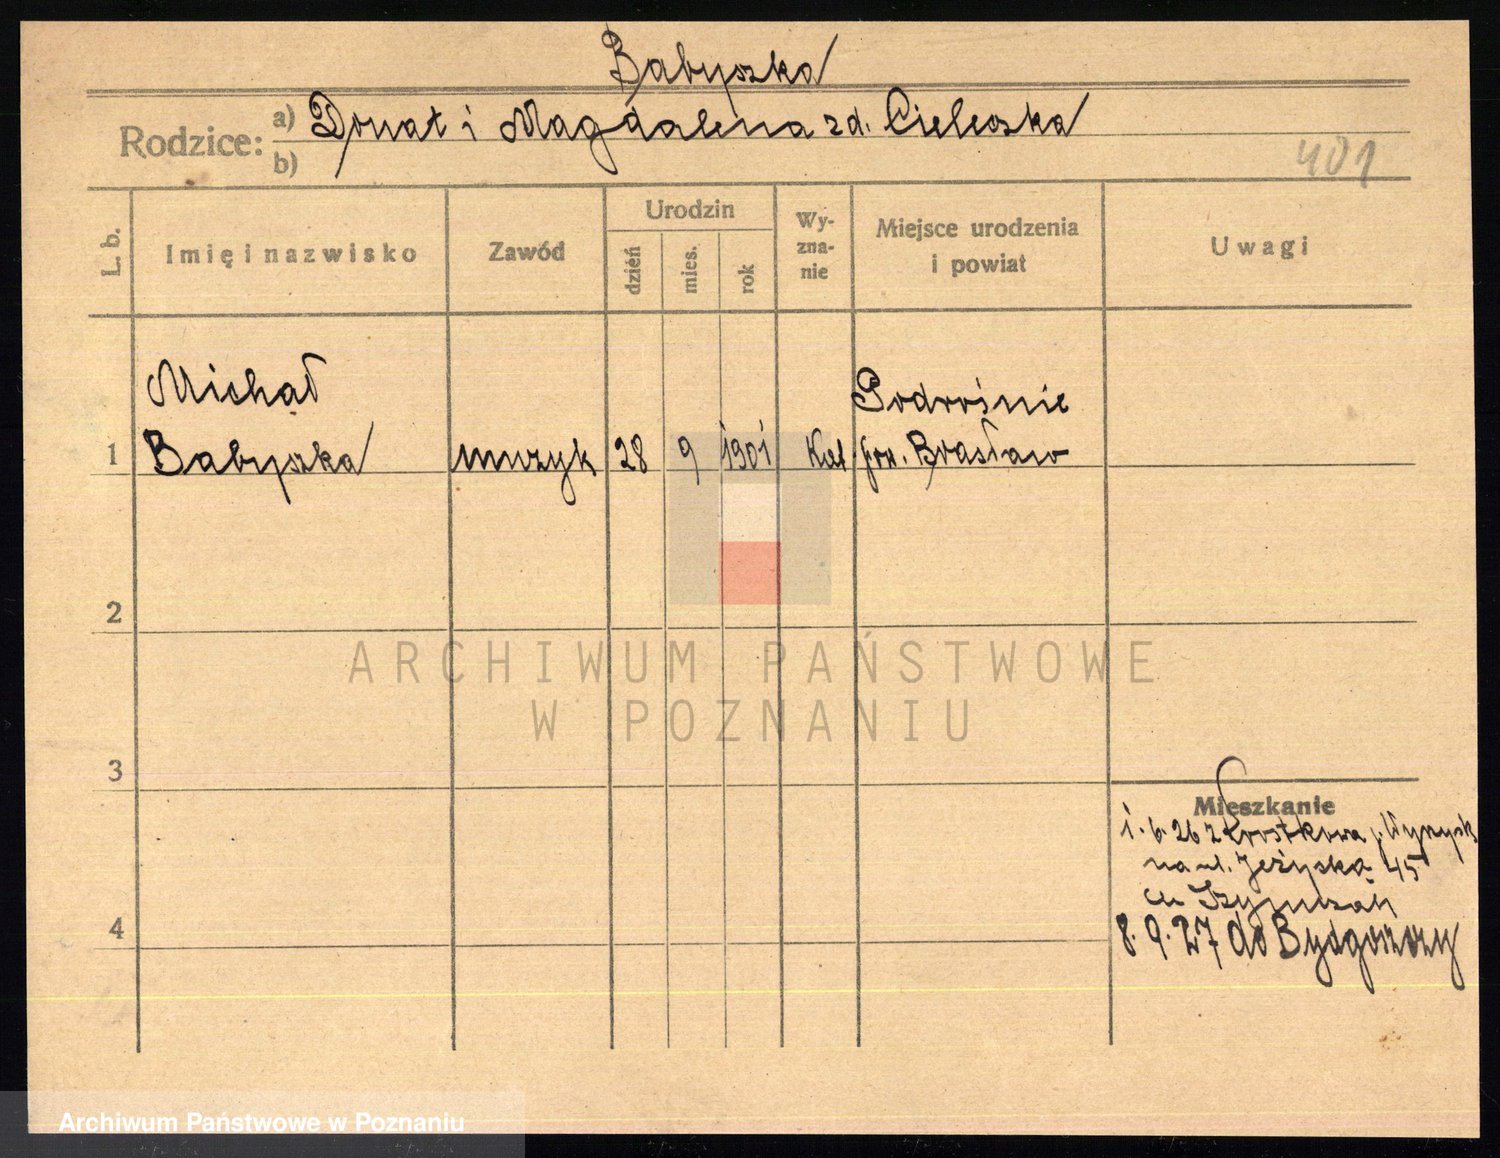 Babyszka
Rodzice: a) Donat i Magdalena zd. Cieleszka
b)
401
L. b.
Imię i nazwisko
Zawód
Urodzin
dzień
mies.
rok
Wy-
zna-
nie
Miejsce urodzenia
i powiat
Uwagi
Michał
Podrośnie
1 Babyszka muzyk 28 9 1901 Kat pow. Brasław
2
ARCHIWUM PAŃSTWOWE
W POZNANIU
3
Mieszkanie
1.6.26 z Krostkowa p. Wyrzysk
na ul. Jeżycka 45
8.9.27 do Bydgoszczy
4
Archiwum Państwowe w Poznaniu